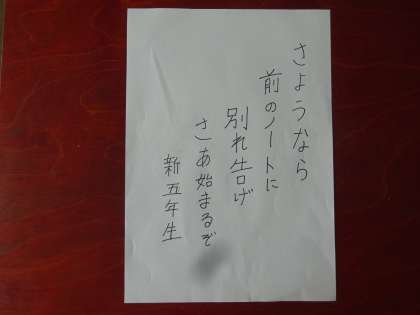 さようなら
前のノートに
別れ告げ
さあ始まるぞ
新五年生